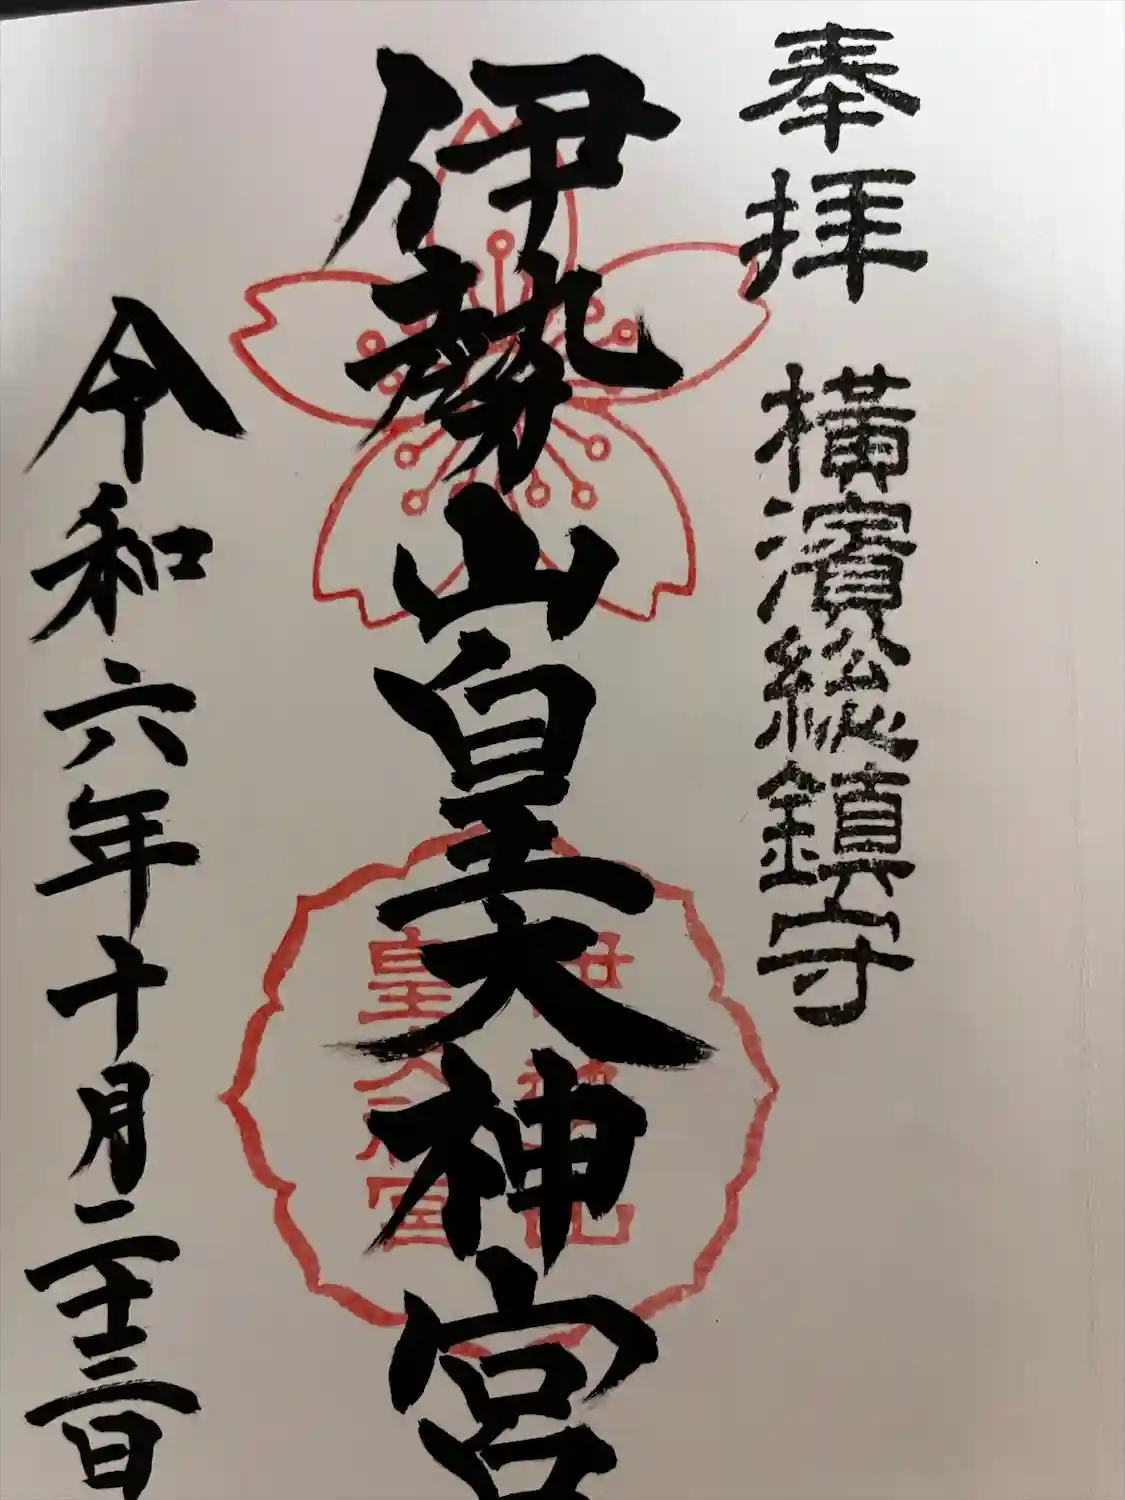 奉拝 横濱総鎮守
伊勢山皇大神宮
令和六年十月二十三日
伊勢山
皇大神宮